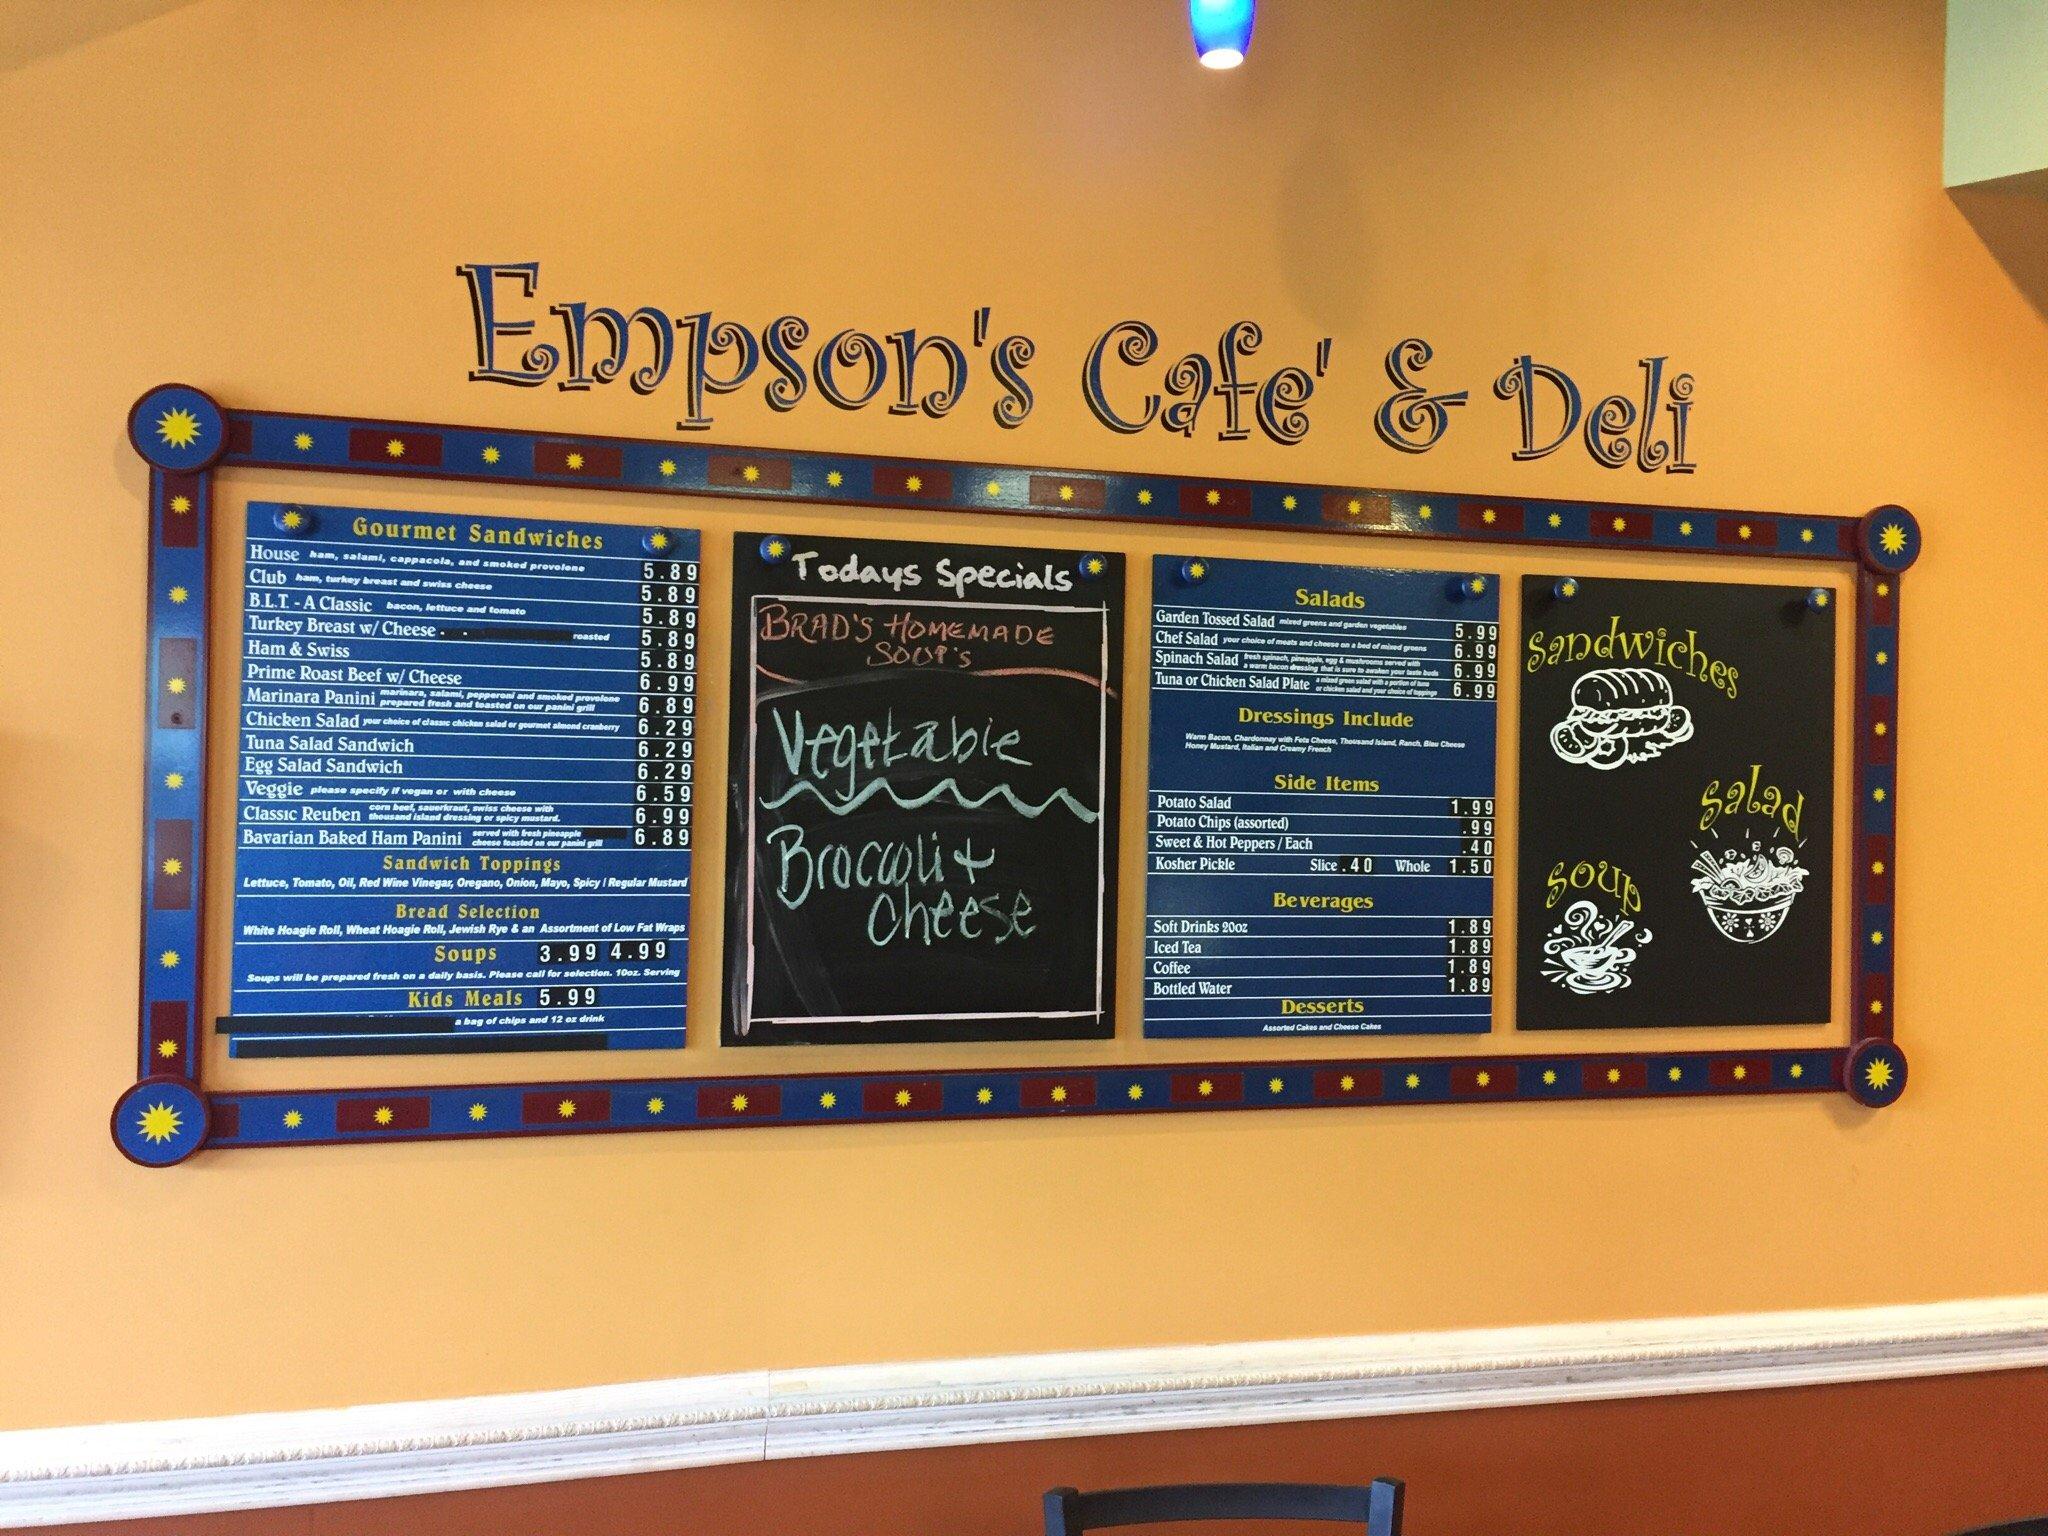 Empson's Cafe' & Deli
Gourmet Sandwiches
House ham, salami, cappacola, and smoked provolone 5.89
Club ham, turkey breast and swiss cheese 5.89
B.L.T. - A Classic bacon, lettuce and tomato 5.89
Turkey Breast w/ Cheese roasted 5.89
Ham & Swiss 5.89
Prime Roast Beef w/ Cheese 6.99
Marinara Panini marinara, salami, pepperoni and smoked provolone 6.89
prepared fresh and toasted on our panini grill
Chicken Salad your choice of classic chicken salad or gourmet almond cranberry 6.29
Tuna Salad Sandwich 6.29
Egg Salad Sandwich 6.29
Veggie please specify if vegan or with cheese 6.59
Classic Reuben corn beef, sauerkraut, swiss cheese with 6.99
thousand island dressing or spicy mustard.
Bavarian Baked Ham Panini served with fresh pineapple 6.89
cheese toasted on our panini grill
Sandwich Toppings
Lettuce, Tomato, Oil, Red Wine Vinegar, Oregano, Onion, Mayo, Spicy / Regular Mustard
Bread Selection
White Hoagie Roll, Wheat Hoagie Roll, Jewish Rye & an Assortment of Low Fat Wraps
Soups 3.99 4.99
Soups will be prepared fresh on a daily basis. Please call for selection. 10oz. Serving
Kids Meals 5.99
a bag of chips and 12 oz drink
Todays Specials
BRAD'S HOMEMADE
SOUP'S
Vegetable
Broccoli +
cheese
Salads
Garden Tossed Salad mixed greens and garden vegetables 5.99
Chef Salad your choice of meats and cheese on a bed of mixed greens 6.99
Spinach Salad fresh spinach, pineapple, egg & mushrooms served with 6.99
a warm bacon dressing that is sure to awaken your taste buds
Tuna or Chicken Salad Plate a mixed green salad with a portion of tuna 6.99
or chicken salad and your choice of toppings
Dressings Include
Warm Bacon, Chardonnay with Feta Cheese, Thousand Island, Ranch, Bleu Cheese
Honey Mustard, Italian and Creamy French
Side Items
Potato Salad 1.99
Potato Chips (assorted) .99
Sweet & Hot Peppers / Each .40
Kosher Pickle Slice .40 Whole 1.50
Beverages
Soft Drinks 20oz 1.89
Iced Tea 1.89
Coffee 1.89
Bottled Water 1.89
Desserts
Assorted Cakes and Cheese Cakes
Sandwiches
Salad
Soup